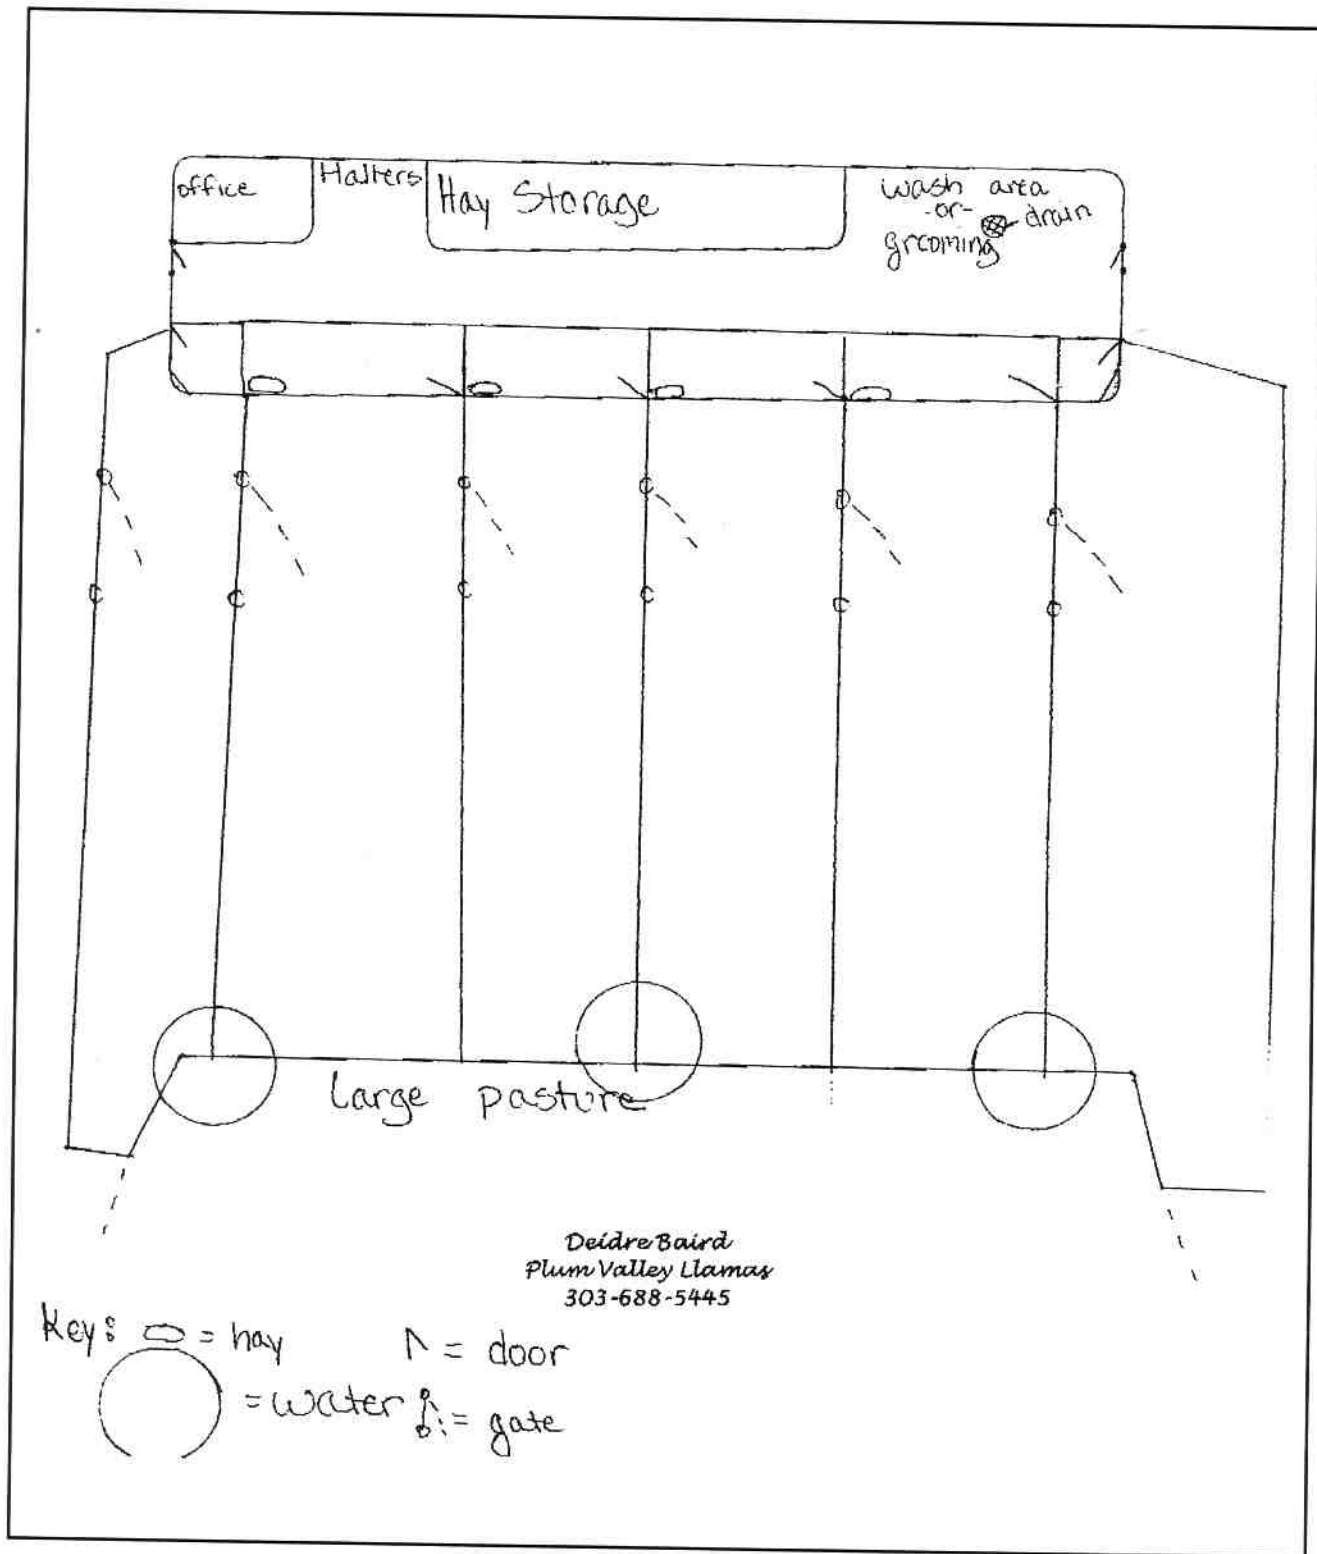 office
Halters
Hay Storage
wash area
-or-
grooming
drain
Large pasture
Deidre Baird
Plum Valley Llamas
303-688-5445
Key: = hay
= door
= water
= gate